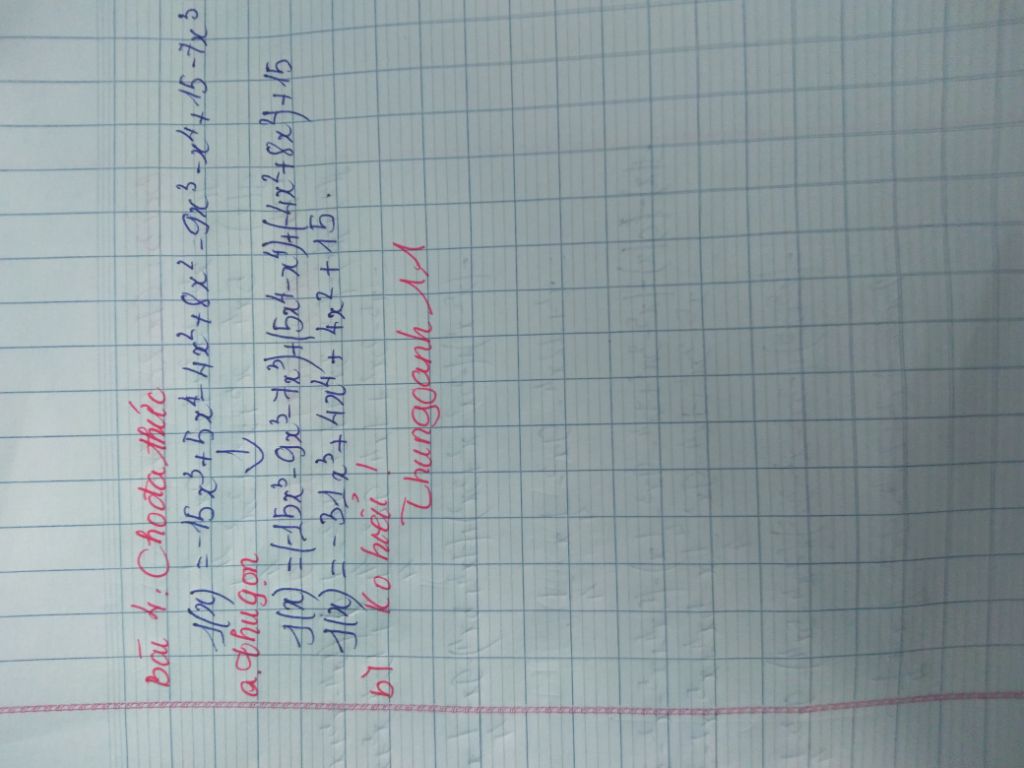 Bài 4: Cho đa thức
f(x) = -15x³+5x⁴-4x²+8x²-9x³-x⁴+15-7x³
a. Thu gọn
f(x) = (-15x³-9x³-7x³)+(5x⁴-x⁴)+(-4x²+8x²)+15
f(x) = -31x³+4x⁴+4x²+15.
b) Ko hiểu!
Thungoanh 11